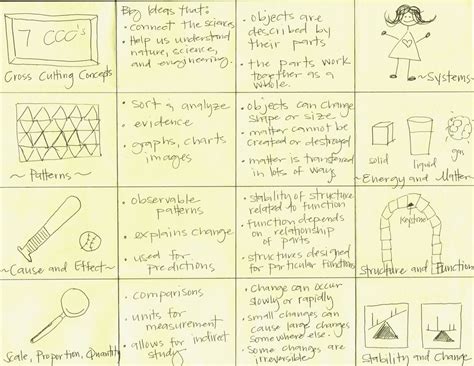 7 CCC's
Cross Cutting Concepts
Big Ideas that:
• connect the sciences
• Help us understand
nature, science,
and engineering.
• objects are
described by
their parts
• the parts work
together as a
whole.
~Systems~
~Patterns~
• sort & analyze
• evidence
• graphs, charts
images
• objects can change
shape or size
• matter cannot be
created or destroyed
• matter is transferred
in lots of ways
solid
liquid
gas
~Energy and Matter~
~Cause and Effect~
• observable
patterns
• explains change
• used for
predictions
• stability of structure
related to function
• function depends
on relationship
of parts
• structures designed
for particular functions
Keystone
Structure and Function
Scale, Proportion, Quantity
• comparisons
• units for
measurement
• allows for indirect
study
• Change can occur
slowly or rapidly
• small changes can
cause large changes
somewhere else.
• Some changes are
irreversible
Stability and Change